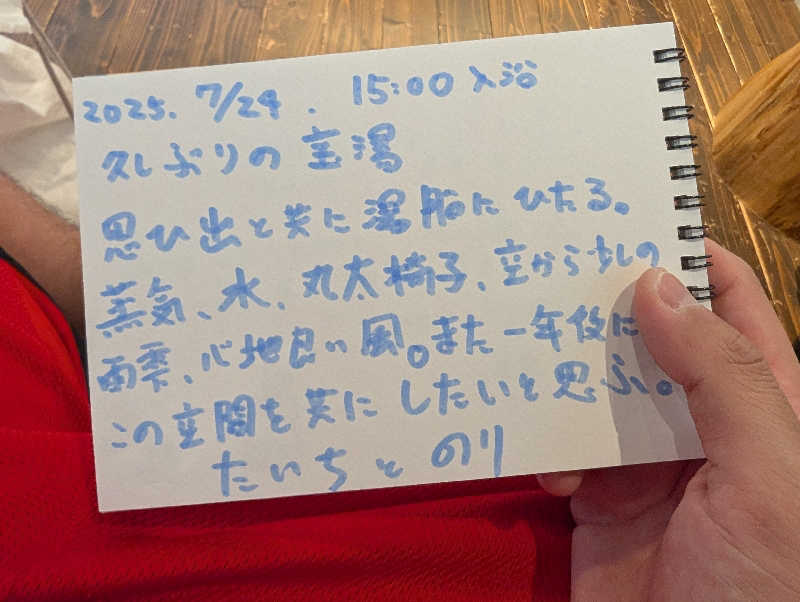 2025. 7/24. 15:00 入浴
久しぶりの 宝湯
思ひ出と共に湯船にひたる。
蒸気、水、丸太椅子、空から少しの
雨雫、心地良い風。また一年後に
この空間を共にしたいと思ふ。
たいちと のり